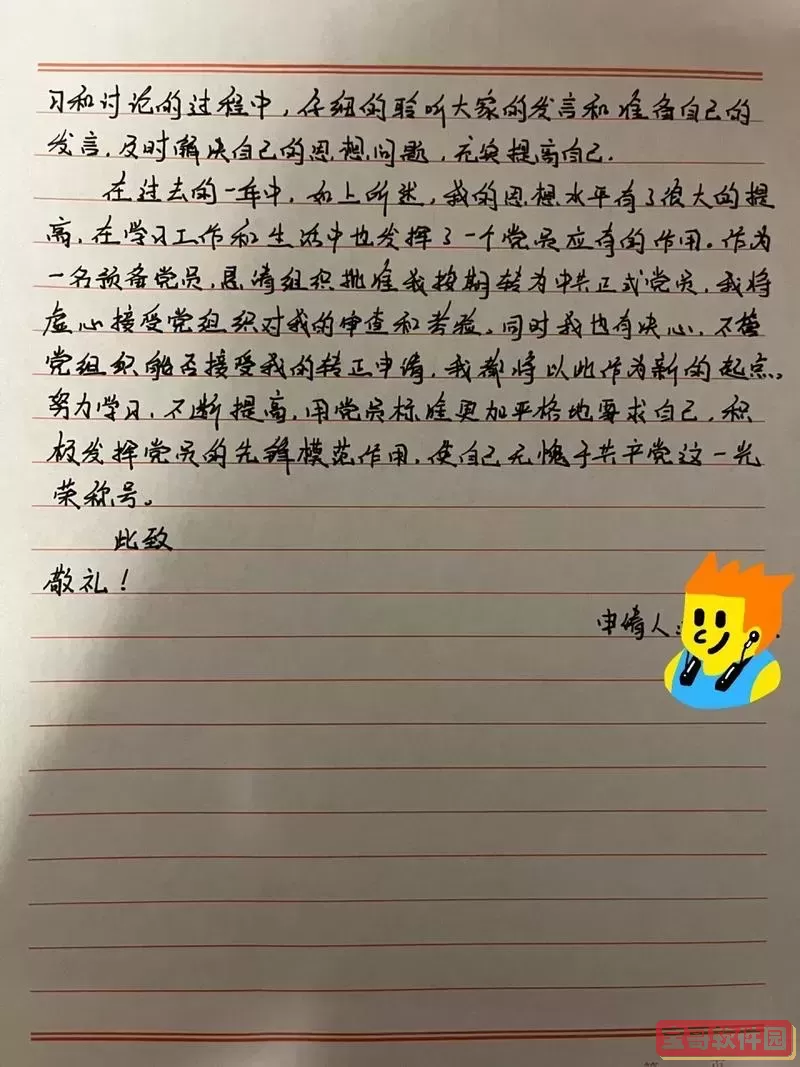 习和讨论的过程中，仔细的聆听大家的发言和准备自己的
发言，及时解决自己的思想问题，充实提高自己.
在过去的一年中，如上所述，我的思想水平有了很大的提
高，在学习工作和生活中也发挥了一个党员应有的作用。作为
一名预备党员，恳请组织批准我按期转为中共正式党员，我将
虚心接受党组织对我的审查和考验。同时我也有决心，不管
党组织能否接受我的转正申请，我都将以此作为新的起点。
努力学习，不断提高，用党员标准更加严格地要求自己，积
极发挥党员的先锋模范作用，使自己无愧于共产党这一光
荣称号。
此致
敬礼！
申请人：
宝哥软件园